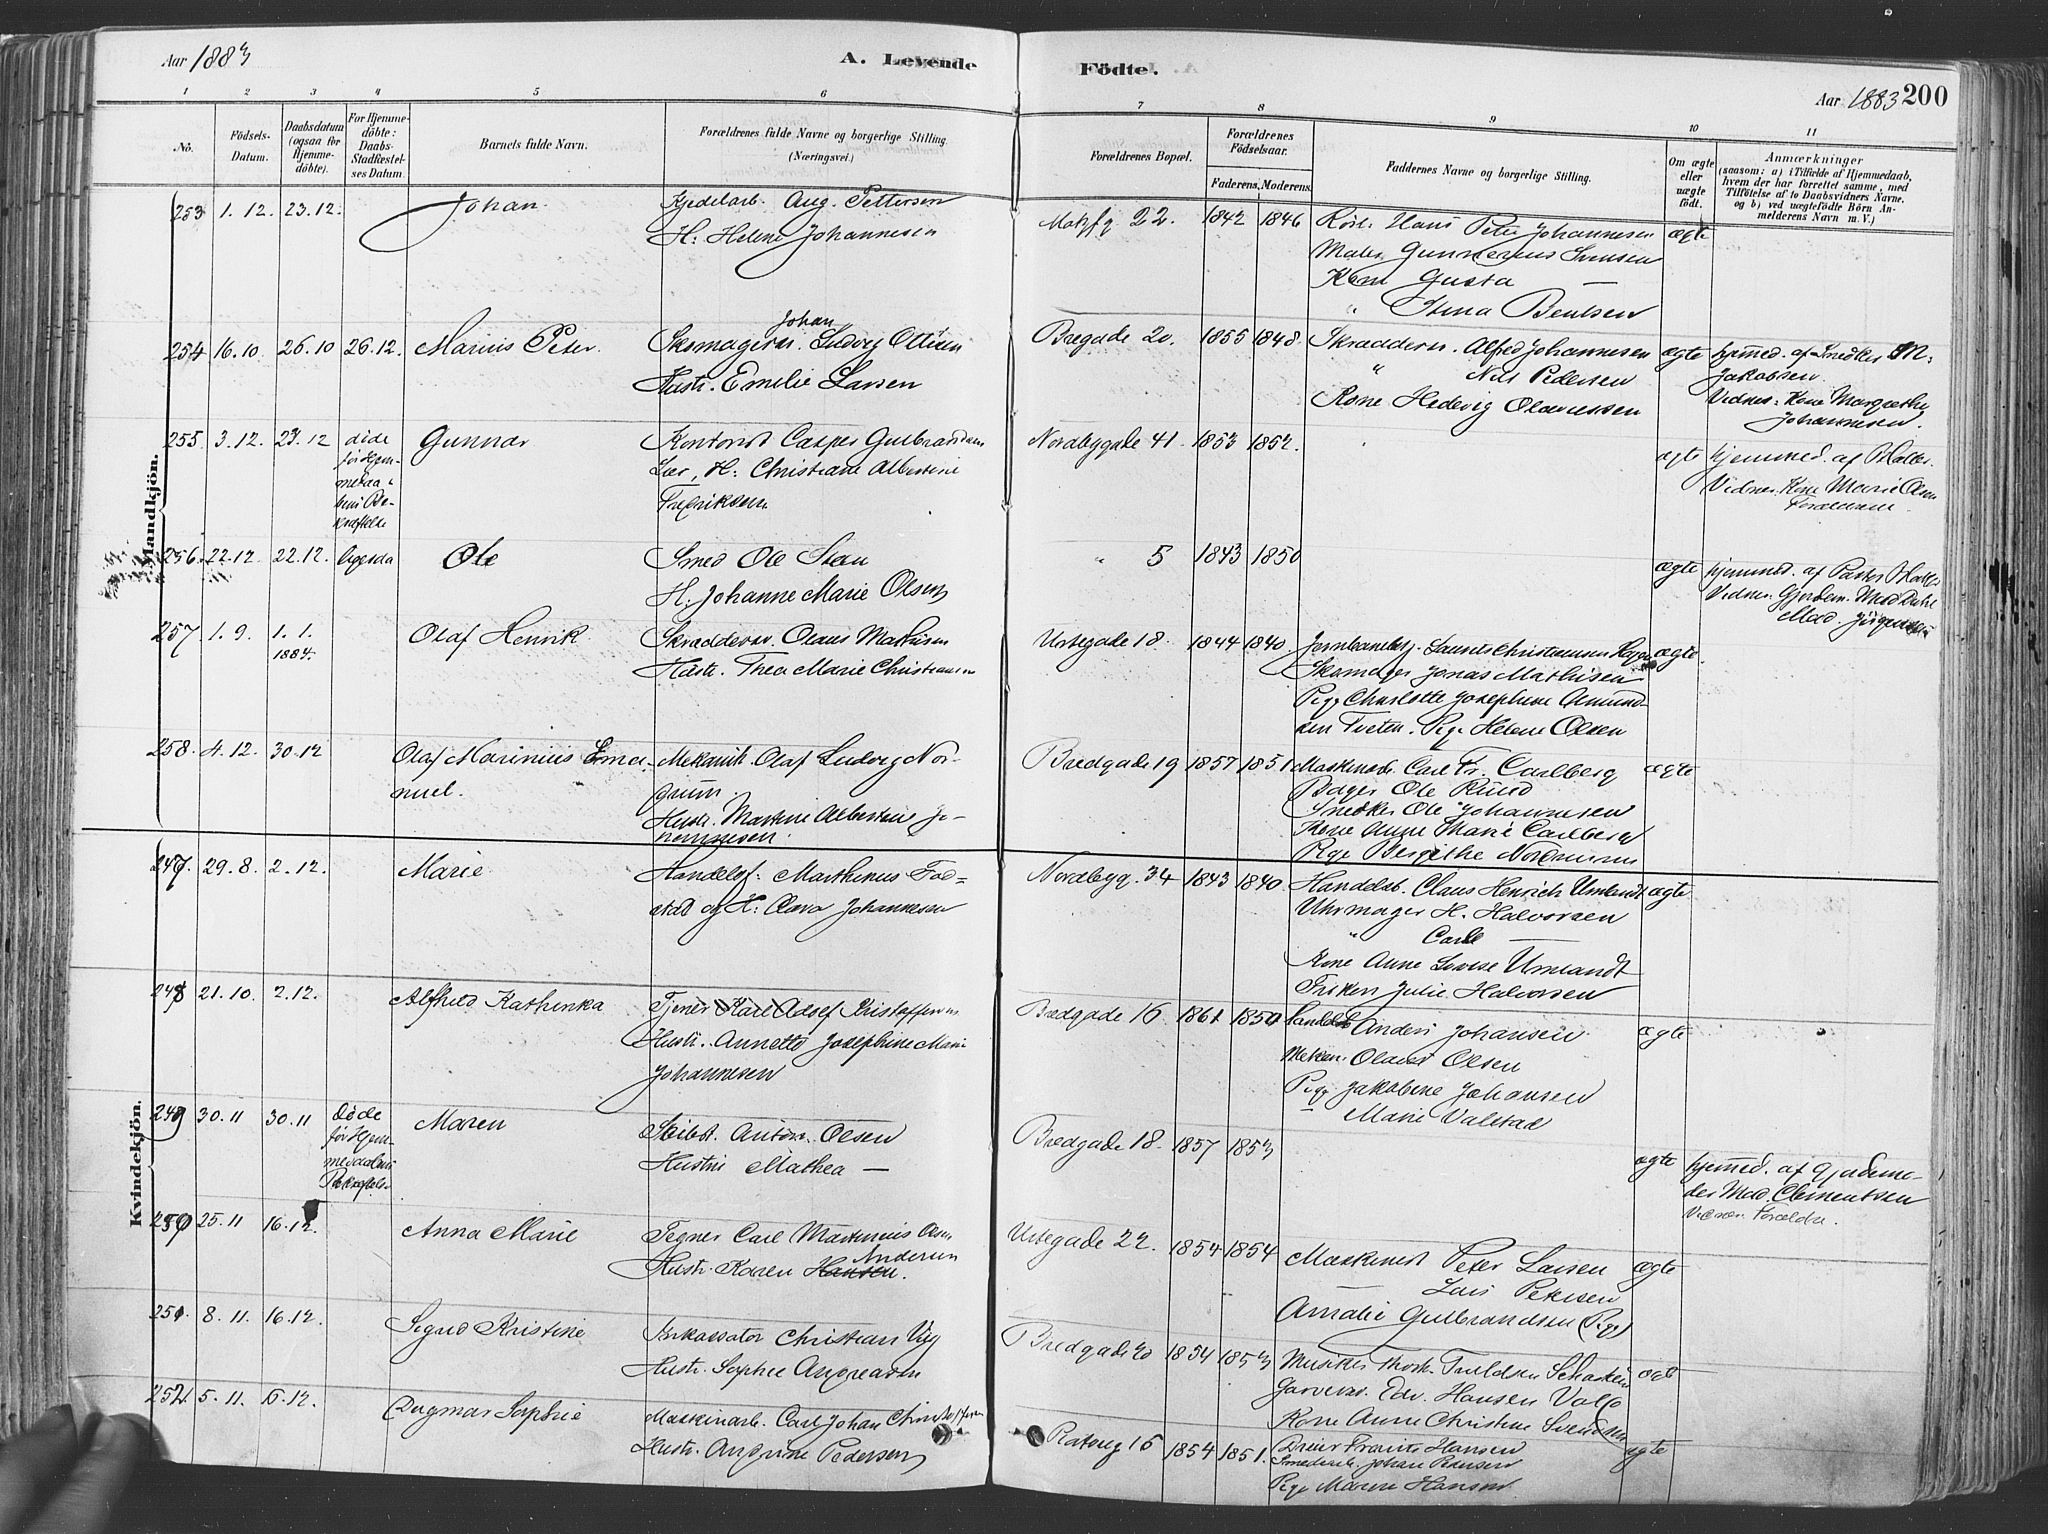 Aar 1883
A. Levende
Födte.
Aar 1883
200
1 2 3 4 5 6 7 8 9 10 11
No.
Födsels-
Datum.
Daabsdatum
(ogsaa for
Hjemme-
döbte).
For Hjemme-
döbte:
Daabs-
Stadfæstel-
ses Datum.
Barnets fulde Navn.
Forældrenes fulde Navne og borgerlige Stilling.
(Næringsvei.)
Forældrenes Bopæl.
Forældrenes
Födselsaar.
Faderens. Moderens.
Faddernes Navne og borgerlige Stilling.
Om ægte
eller
uægte
født.
Anmærkninger
(saasom: a) i Tilfælde af Hjemmedaab,
hvem der har forrettet samme, med
Tilföielse af to Daabsvidners Navne.
og b) ved uægtefödte Börn An-
melderens Navn m. V.)
Mandkjön.
253 1.12. 23.12. Johan
Kjedelarb. Aug. Pettersen
H: Helene Johannesen
22. 1842 1846
Hans Peter Johannesen
Maler Gunnerius Svensen
Kone Gusta —
" Stina Bentsen
ægte
254 16.10 26.10 26.12. Marius Peter
Johan
Skomagersv. Ludvig Ottesen
Hustr. Emelie Larsen
Bregade 20. 1855 1848.
Skræddersv. Alfred Johannesen
" Nils Pedersen
Kone Hedevig Olavessen
ægte
hjemmed. af Snedker M.
Jakobsen.
Vidner: Kone Margrethe
Johannesen.
255 3.12. 23.12
døde
før Hjem-
Gunnar
Kontorist Casper Gulbrandsen
Lær, H: Christiane Albertine
Fredriksen
Nordbygade 41. 1853 1852.
ægte
hjemmed. af
Vidner. Kone Marie Olsen
Forældrene
256 22.12. 22.12. ligesaa Ole
Smed Ole Steen
H. Johanne Marie Olsen
" 5 1843 1850
ægte
hjemmed. af Pastor
Mad. Jörgensen
257 1.9. 1.1.
1884.
Olaf Henrik
Skræddersv. Olaus Mathisen
Hustr. Thea Marie Christiansen
Urtegade 18. 1844 1840.
Laurits Christiansen
Skomager Jonas Mathisen
Pige Charlotte Josephine Amund-
sen Tveten. Pige Helene Olsen
ægte
258. 4.12. 30.12
Olaf Marinius Ema-
nuel.
Mekanik. Olaf Ludvig Nor-
grum.
Hustr. Martine Albertine Jo-
hannesen.
Bredgade 19 1857 1851
Maskinarb. Carl Fr. Carlberg
Bager Ole Ruud
Snedker Ole Johannesen
Kone Anne Marie Carlberg
Pige Bergithe
ægte
Kvindekjön.
247 29.8. 2.12. Marie
Handelsf: Marthinius Fod-
stad og H: Olava Johannesen
Nordbyg. 34 1843 1840.
Handelsb. Claus Henrich Umlandt
Uhrmager H. Halvorsen
" Carl —
Kone Anne Lovise Umlandt
Frøken Julie Halvorsen
ægte
248 21.10. 2.12. Alfhild Kathinka
Tjener Karl Adolf Kristoffersen
Hustr. Annette Josephine Marie
Johannesen
Bredgade 16 1861 1850
Anders Johansen
Olaves Olsen
Pige Jakobine Johansen
Marie Valstad
ægte
249 30.11 30.11
Døde
før Hjem-
Maren
Anton Olsen
Hustru Mathea —
Bredgade 18. 1857 1853
ægte
hjemmed. af Gjordemo-
der Mad. Clementsen
Vidner Forældre.
250 25.11 16.12. Anna Marie
Tegner Carl Martinius Olsen
Andersen
Hustr. Karen Hansen.
Urtegade 22. 1854 1854
Maskinist Peter Larsen
Lars Petersen
Amalie Gulbrandsen (Pige)
ægte
251 8.11. 16.12. Signe Kristine
Inkassator Christian Vig
Hustr. Sophie Andreasen
Bredgade 20 1854 1853
Garversv. Edv. Hansen Valsø
Kone Anne Christine Svendsen
ægte
252 5.11. 6.12. Dagmar Sophie
Maskinarb. Carl Johan Christoffersen
Hustr. Andrine Pedersen
16 1854 1851.
Dreier Frants Hansen
Smedarb. Johan Pedersen
Pige Maren Hansen
ægte